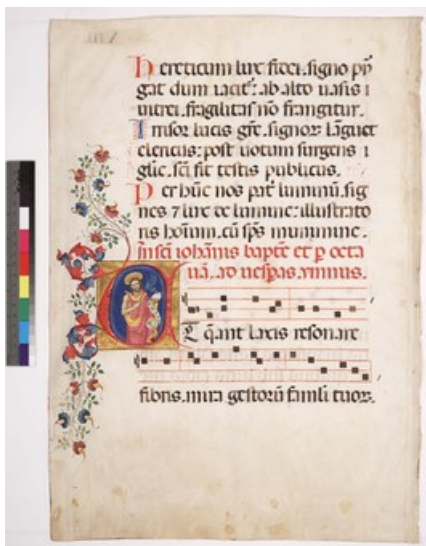 hereticum lire fidei. signo pp̄
gat dum iacit: ab alto uasis i
uitrei. fragilitas nō frangitur.
Inrisor lucis gr̄e. signor lāguet
elencus: post uotum surgens i
gl̄ie. sc̄i fit testis publicus.
Per hūc nos pat̄ luminū. sig
nes 7 lire de lumine: illustrato
ris hōinum. cū sp̄s munimine.
In sc̄i iohānis bapte et p octa
uā. ad uesp̄as. ymnus.
Ut q̄ant laxis resonare
fibris. mira gestorū famuli tuoꝝ.